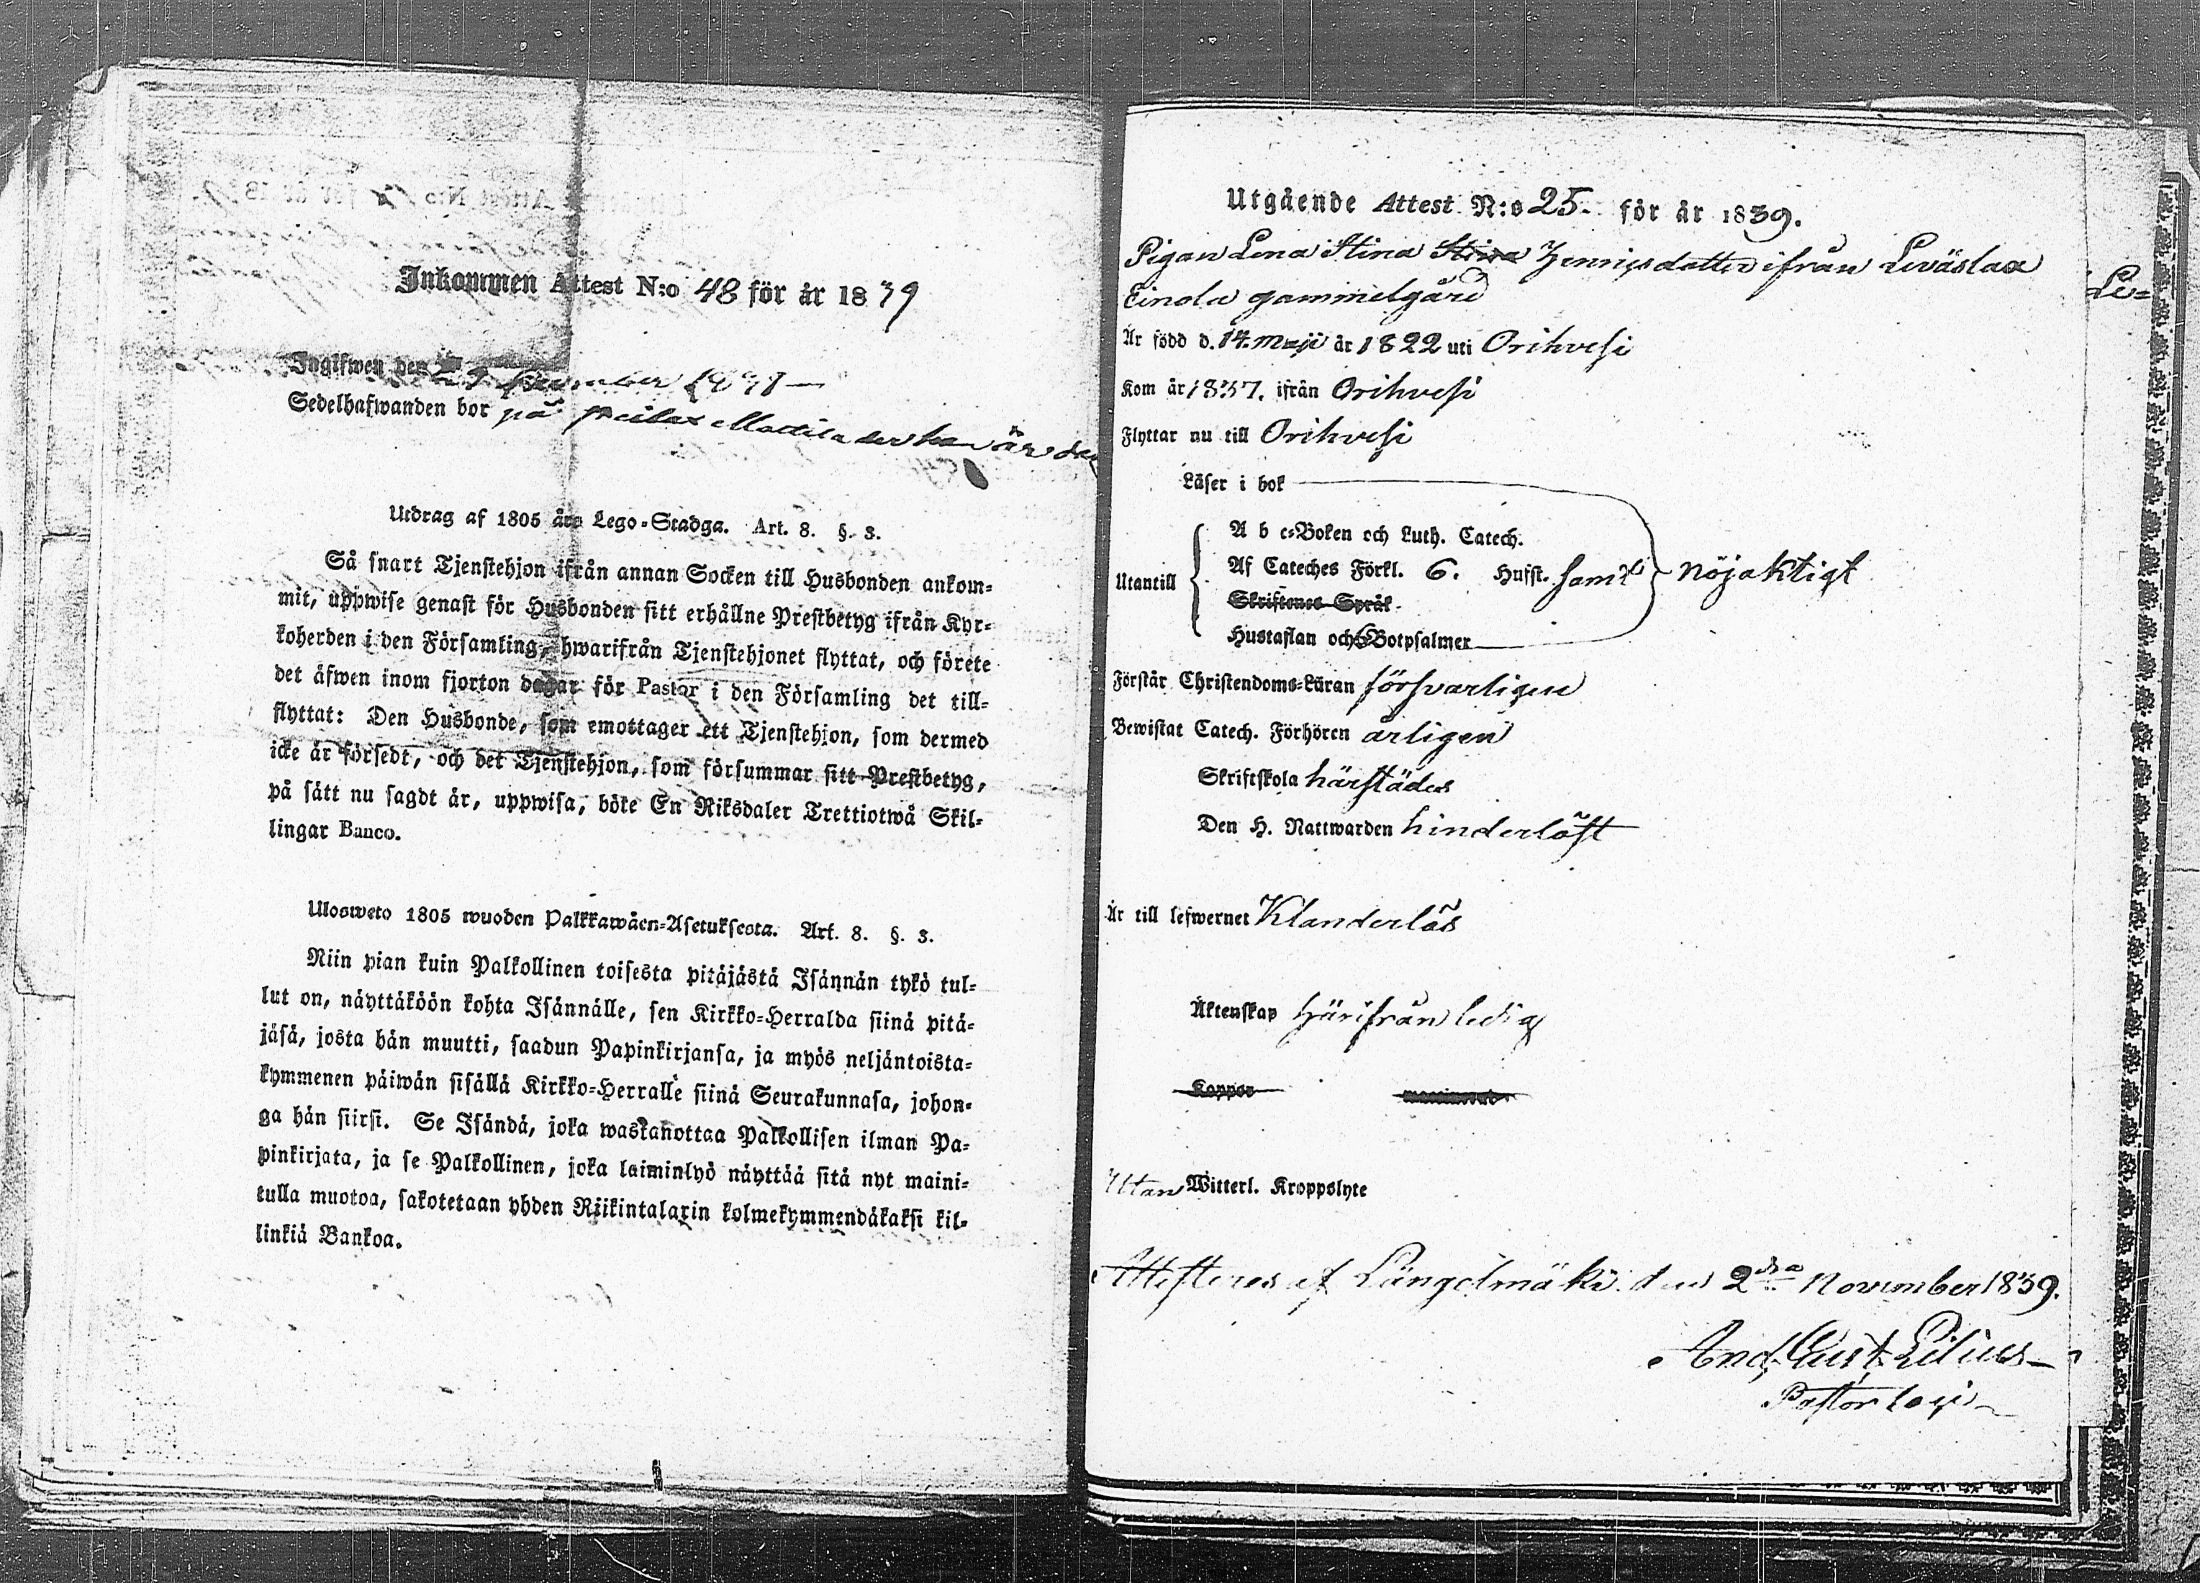 Inkommen Attest N:o 48 för år 1839
Ingifwen den
Sedelhafwanden bor på
Utdrag af 1805 års Lego-Stadga. Art. 8. §. 3.
Så snart Tjenstehjon ifrån annan Socken till Husbonden ankom=
mit, uppwise genast för Husbonden sitt erhållne Prestbetyg ifrån Kyr=
koherden i den Församling, hwarifrån Tjenstehjonet flyttat, och förete
det äfwen inom fjorton dagar för Pastor i den Församling det till=
flyttat: Den Husbonde, som emottager ett Tjenstehjon, som dermed
icke är försedt, och det Tjenstehjon, som försummar sitt Prestbetyg,
på sätt nu sagdt är, uppwisa, böte En Riksdaler Trettiotwå Skil=
lingar Banco.
Ulosweto 1805 wuoden Palkkawäen=Asetuksesta. Art. 8. §. 3.
Niin pian kuin Palkollinen toisesta pitäjästä Isännän tykö tul=
lut on, näyttäköön kohta Isännälle, sen Kirkko=Herralda siinä pitä=
jäsä, josta hän muutti, saadun Papinkirjansa, ja myös neljäntoista=
kymmenen päiwän sisällä Kirkko=Herralle siinä Seurakunnasa, johon=
ga hän siirsi. Se Isändä, joka wastanottaa Palkollisen ilman Pa=
pinkirjata, ja se Palkollinen, joka laiminlyö näyttää sitä nyt maini=
tulla muotoa, sakotetaan yhden Riikintalarin kolmekymmendäkaksi kil=
linkiä Bankoa.
Utgående Attest N:o 25. för år 1839.
Pigan Lena Stina Stina Henricsdotter ifrån Leväslax
Einola gammelgård
Är född d. 14. Maji år 1822 uti Orihvesi
Kom år 1837. ifrån Orihvesi
Flyttar nu till Orihvesi
Läser i bok
A b c=Boken och Luth. Catech.
Utantill Af Cateches Förkl. 6. Hufst. samt nöjaktigt
Skriftenes Språk.
Hustaflan och 6 Botpsalmer
Förstår Christendoms=Läran försvarligen
Bewistat Catech. Förhören årligen
Skriftskola härstädes
Den H. Nattwarden hinderlöst
Är till lefwernet Klanderlös
Äktenskap härifrån ledig
Koppor
Utan Witterl. Kroppslyte
Attesteres af Längelmäki den 2dra November 1839.
And. Gust. Lilius
Pastor
Le=